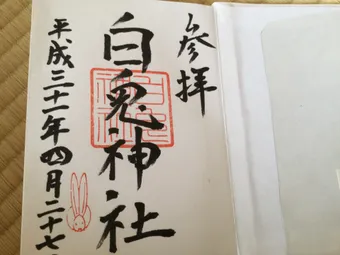 参拝
白兎神社
平成三十一年四月二十七